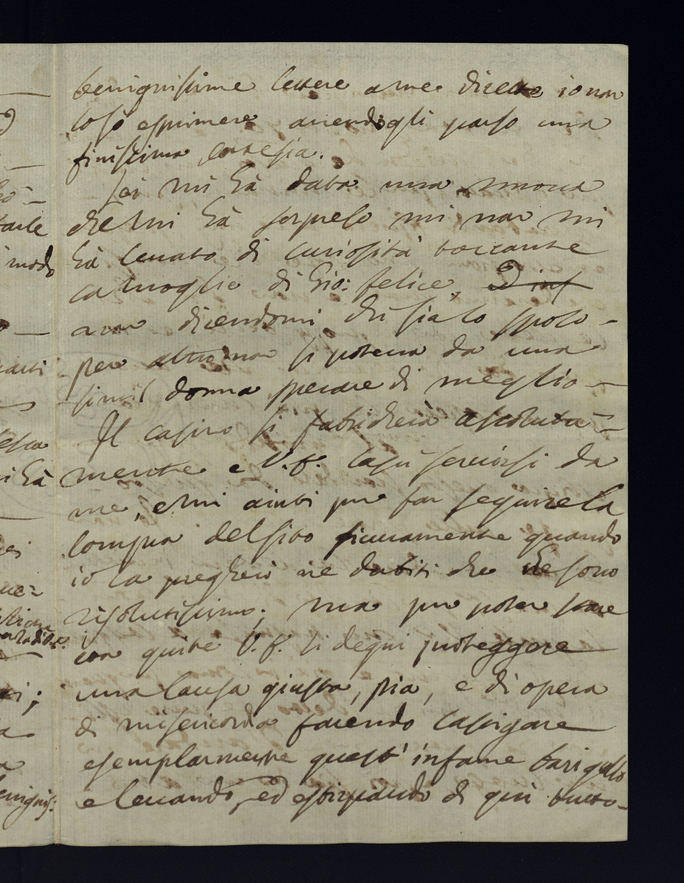 benignissime lettere a me dirette io non
lo so esprimere avendogli parso una
finissima cortesia.
Lei mi hà data una nuova
che mi hà sorpreso mi non mi
hà levato di curiosità toccante
la moglie di Gio: felice,
dicendomi chi sia lo sposo
per altro non si poteva da una
simil donna sperare di meglio
Il casino si fabricherà assoluta=
mente e V.S. lasci servirsi da
me, e mi aiuti pur far seguire la
compra del sito sicuramente quando
io la pregherò ne dubiti che ne sono
risolutissimo; ma pur poter stare
con quiete V.S. si degni proteggere
una causa giusta, pia, e di opera
di misericordia facendo castigare
esemplarmente quest' infame barigello
e levando, ed estirpando di qui tutto